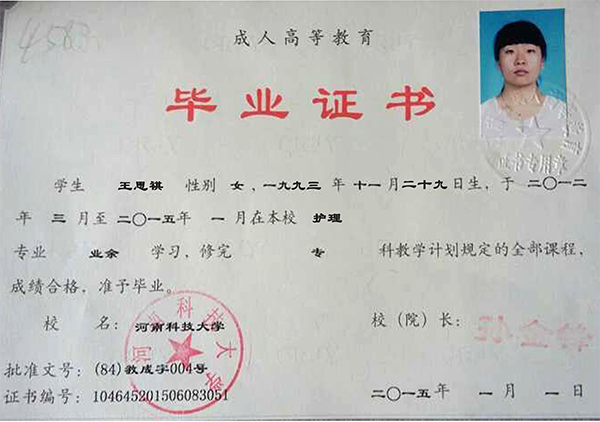 4583
成人高等教育
毕业证书
学生 王思祺 性别 女,一九九三 年 十一 月 二十九 日生,于 二〇一二
年 三 月至 二〇一五年 一 月在本校 护理
专业 业余 学习,修完 专 科教学计划规定的全部课程,
成绩合格,准予毕业。
校 名: 河南科技大学
校(院)长:
批准文号: (84)教成字004号
证书编号: 104645201506083051
二〇一五年 一 月 一 日
河南科技大学
证书专用章